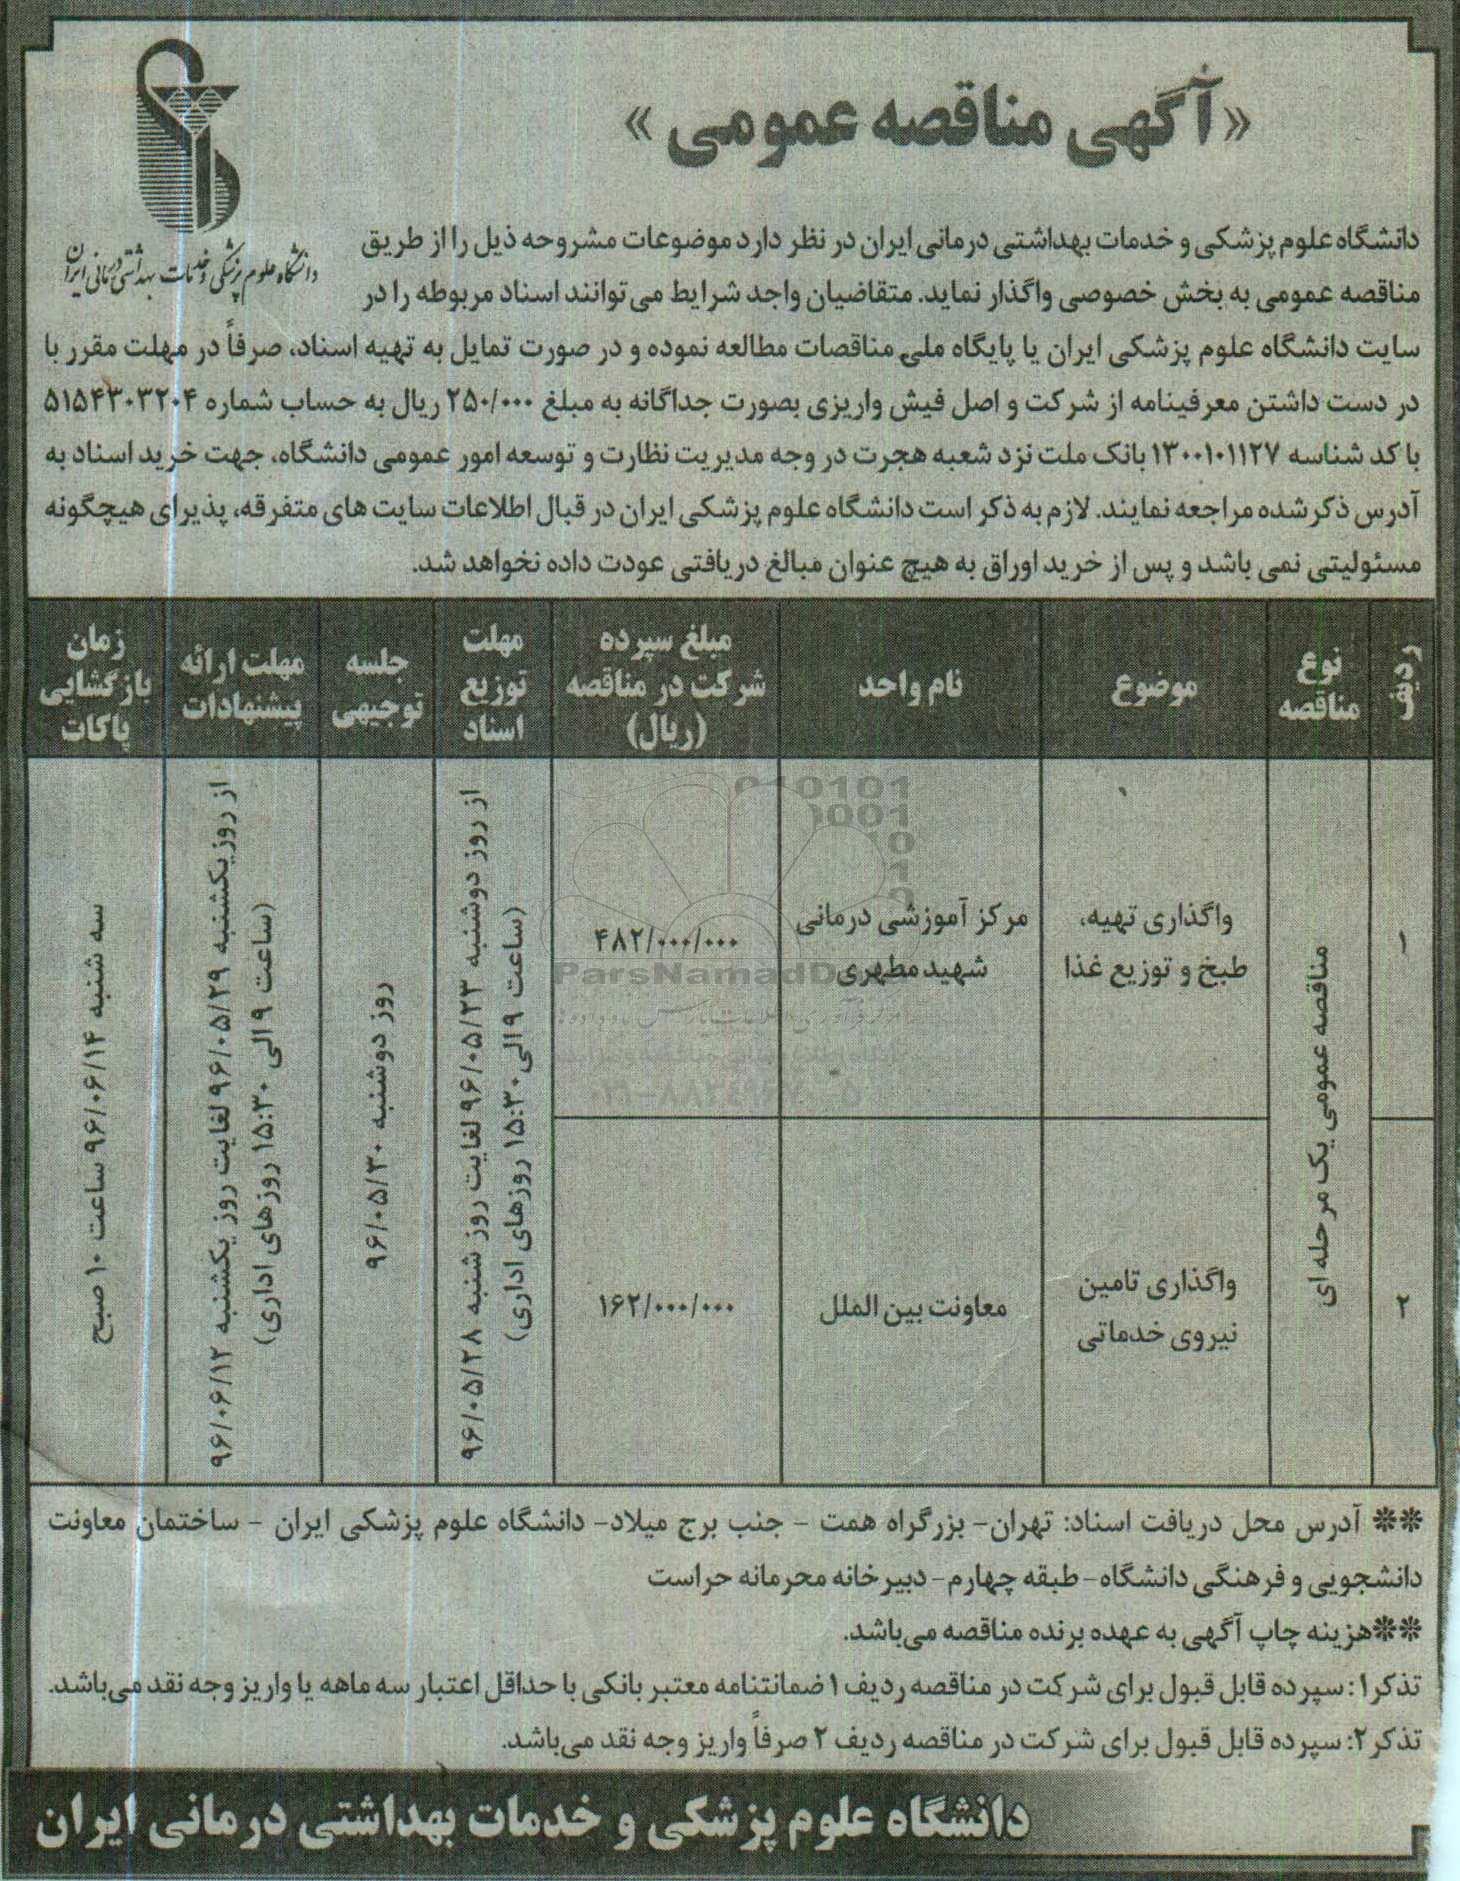 «آگهی مناقصه عمومی»
دانشگاه علوم پزشکی و خدمات بهداشتی درمانی ایران
دانشگاه علوم پزشکی و خدمات بهداشتی درمانی ایران در نظر دارد موضوعات مشروحه ذیل را از طریق
مناقصه عمومی به بخش خصوصی واگذار نماید. متقاضیان واجد شرایط می‌توانند اسناد مربوطه را در
سایت دانشگاه علوم پزشکی ایران یا پایگاه ملی مناقصات مطالعه نموده و در صورت تمایل به تهیه اسناد، صرفاً در مهلت مقرر با
در دست داشتن معرفینامه از شرکت و اصل فیش واریزی بصورت جداگانه به مبلغ ۲۵۰/۰۰۰ ریال به حساب شماره ۵۱۵۴۳۰۳۲۰۴
با کد شناسه ۱۳۰۰۱۰۱۱۲۷ بانک ملت نزد شعبه هجرت در وجه مدیریت نظارت و توسعه امور عمومی دانشگاه، جهت خرید اسناد به
آدرس ذکر شده مراجعه نمایند. لازم به ذکر است دانشگاه علوم پزشکی ایران در قبال اطلاعات سایت های متفرقه، پذیرای هیچگونه
مسئولیتی نمی باشد و پس از خرید اوراق به هیچ عنوان مبالغ دریافتی عودت داده نخواهد شد.
ردیف
نوع
مناقصه
موضوع
نام واحد
مبلغ سپرده
شرکت در مناقصه
(ریال)
مهلت
توزیع
اسناد
جلسه
توجیهی
مهلت ارائه
پیشنهادات
زمان
بازگشایی
پاکات
۱
مناقصه عمومی یک مرحله ای
واگذاری تهیه،
طبخ و توزیع غذا
مرکز آموزشی درمانی
شهید مطهری
۴۸۲/۰۰۰/۰۰۰
از روز دوشنبه ۹۶/۰۵/۲۳ لغایت روز شنبه ۹۶/۰۵/۲۸
(ساعت ۹ الی ۱۵:۳۰ روزهای اداری)
روز دوشنبه ۹۶/۰۵/۳۰
از روز یکشنبه ۹۶/۰۵/۲۹ لغایت روز یکشنبه ۹۶/۰۶/۱۲
(ساعت ۹ الی ۱۵:۳۰ روزهای اداری)
سه شنبه ۹۶/۰۶/۱۴ ساعت ۱۰ صبح
۲
واگذاری تامین
نیروی خدماتی
معاونت بین الملل
۱۶۲/۰۰۰/۰۰۰
** آدرس محل دریافت اسناد: تهران- بزرگراه همت - جنب برج میلاد- دانشگاه علوم پزشکی ایران - ساختمان معاونت
دانشجویی و فرهنگی دانشگاه- طبقه چهارم- دبیرخانه محرمانه حراست
**هزینه چاپ آگهی به عهده برنده مناقصه می‌باشد.
تذکر۱: سپرده قابل قبول برای شرکت در مناقصه ردیف ۱ ضمانتنامه معتبر بانکی با حداقل اعتبار سه ماهه یا واریز وجه نقد می‌باشد.
تذکر۲: سپرده قابل قبول برای شرکت در مناقصه ردیف ۲ صرفاً واریز وجه نقد می‌باشد.
دانشگاه علوم پزشکی و خدمات بهداشتی درمانی ایران